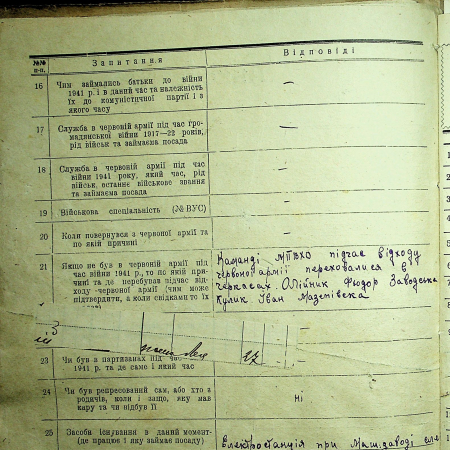 №№ п-п. Запитання Відповіді
16 Чим займались батьки до війни —
1941 р. і в даний час та належність
їх до комуністичної партії і з
якого часу
17 Служба в червоній армії під час гро- —
мадянської війни 1917—22 років,
рід військ та займаєма посада
18 Служба в червоній армії під час —
війни 1941 року, який час, рід
військ, останнє військове звання
та займаєма посада
19 Військова спеціальність (№ ВУС) —
20 Коли повернувся з червоної армії та —
по якій причині
21 Якщо не був в червоній армії під
час війни 1941 р., то по якій при-
чині та де перебував підчас від-
ходу червоної армії (чим може
підтвердити, а коли свідками то їх
Команді МПВХО підчас відходу
червоної армії переховалися в
Черкасах. Олійник Федор Заводська
Кулик Іван Мазепівска
3
17
23 Чи був в партизанах під час
1941 р. та де саме і який час
24 Чи був репресований сам, або хто з Ні
родичів, коли і защо, яку мав
кару та чи відбув її
25 Засоби існування в даний момент-
(де працює і яку займає посаду)
Електростанція при Маш.заводі